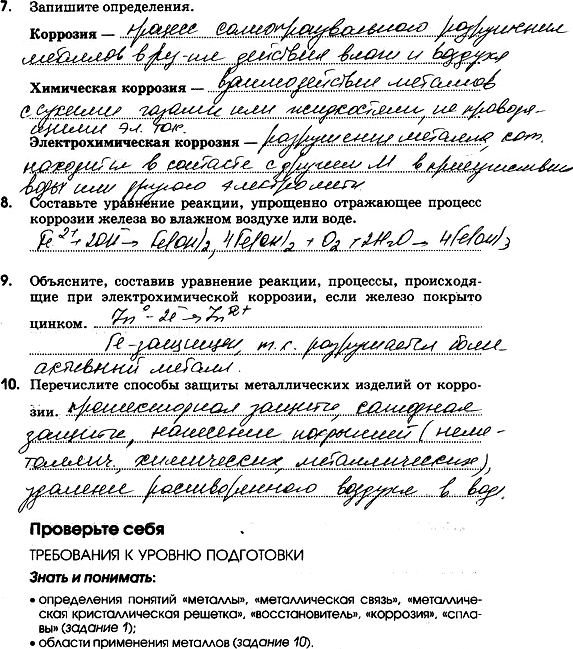 7. Запишите определения.
Коррозия — процесс самопроизвольного разрушения
металлов в рез-те действия влаги и воздуха
Химическая коррозия — взаимодействие металлов
с сухими газами или жидкостями, не проводя-
щими эл. ток.
Электрохимическая коррозия — разрушение металла, кот.
находится в контакте с другим М в присутствии
воды или другого электролита
8. Составьте уравнение реакции, упрощенно отражающее процесс
коррозии железа во влажном воздухе или воде.
Fe²⁺ + 2OH⁻ → Fe(OH)₂, 4Fe(OH)₂ + O₂ + 2H₂O → 4Fe(OH)₃
9. Объясните, составив уравнение реакции, процессы, происходя-
щие при электрохимической коррозии, если железо покрыто
цинком. Zn⁰ - 2e⁻ → Zn²⁺
Fe - защищен, т.к. разрушается более
активный металл.
10. Перечислите способы защиты металлических изделий от корро-
зии. протекторная защита, катодная
защита, нанесение покрытий (неме-
таллич, химических, металлических),
удаление растворенного воздуха в вод.
Проверьте себя
ТРЕБОВАНИЯ К УРОВНЮ ПОДГОТОВКИ
Знать и понимать:
• определения понятий «металлы», «металлическая связь», «металличе-
ская кристаллическая решетка», «восстановитель», «коррозия», «спла-
вы» (задание 1);
• области применения металлов (задание 10).